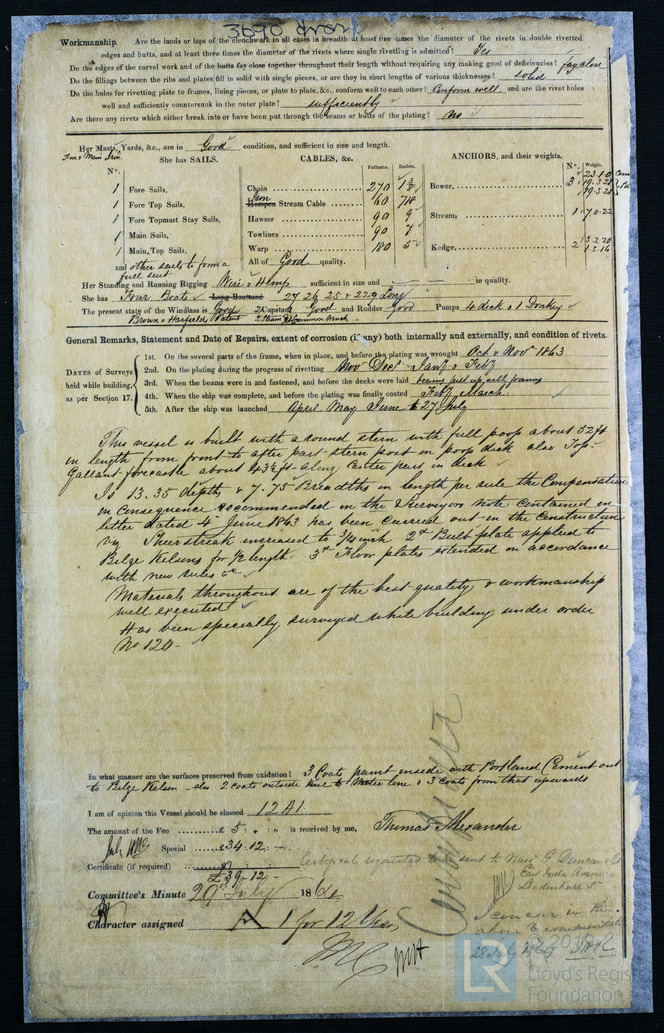 3690 Iron
Workmanship. Are the lands or laps of the clenchwork in all cases in breadth at least five times the diameter of the rivets in double rivetted
edges and butts, and at least three times the diameter of the rivets where single rivetting is admitted? Yes
Do the edges of the carvel work and of the butts fay close together throughout their length without requiring any making good of deficiencies? fay close
Do the fillings between the ribs and plates fill in solid with single pieces, or are they in short lengths of various thicknesses? solid
Do the holes for rivetting plate to frames, lining pieces, or plate to plate, &c., conform well to each other? Conform well and are the rivet holes
well and sufficiently countersunk in the outer plate? sufficiently
Are there any rivets which either break into or have been put through the seams or butts of the plating? No
Her Masts, Yards, &c., are in Good condition, and sufficient in size and length.
She has SAILS. CABLES, &c. ANCHORS, and their weights.
N°. Fathoms. Inches. N°. Weight.
1 Fore Sails, Chain 270 Bower, 3
1 Fore Top Sails, Iron Hempen Stream Cable 60
1 Fore Topmast Stay Sails, Hawser 90 9 Stream, 1 7.0.22
1 Main Sails, Towlines 90 7
1 Main Top Sails, Warp 180 5 Kedge, 2
and other sails to form a full suit All of Good quality.
Her Standing and Running Rigging Wire & Hemp sufficient in size and in quality.
She has Four Boats Long Boat and 27 26 25 & 22.9 Long
The present state of the Windlass is Good Capstan Good and Rudder Good Pumps 4 deck & 1 Donkey
Brown & Harfields Patent
General Remarks, Statement and Date of Repairs, extent of corrosion (if any) both internally and externally, and condition of rivets.
DATES of Surveys held while building, as per Section 17.
1st. On the several parts of the frame, when in place, and before the plating was wrought Oct & Nov 1863
2nd. On the plating during the progress of rivetting Nov Dec Jany & Feby
3rd. When the beams were in and fastened, and before the decks were laid beams put up with frames
4th. When the ship was complete, and before the plating was finally coated Feby March
5th. After the ship was launched April May June to 27 July
This vessel is built with a round stern with full poop about 52 ft
in length from front to after part stern post in poop deck also Top-
Gallant forecastle about 43½ ft along center pins in deck
Is 13.35 depths & 7.75 Breadths in length per rule the Compensation
in consequence recommended in the Surveyors note contained in
letter dated 4th June 1863 has been carried out in the construction
viz Sheerstreak increased to ¾ inch 2d Bulb plate applied to
Bilge Kelsons for ½ length. 3d Floor plates extended in accordance
with new rules &c
Materials throughout are of the best quality & workmanship
well executed
Has been specially surveyed while building under order
No 120
In what manner are the surfaces preserved from oxidation? 3 Coats paint inside with Portland Cement out
to Bilge Kelson also 2 coats outside to Water line & 3 coats from that upwards
I am of opinion this Vessel should be classed 12 A1.
The amount of the Fee £ 5 : " : " is received by me, Thomas Alexander
Special £34.12.-
Certificate (if required)
£39.12.-
Certificate requested to be sent to G Duncan
East India Avenue
Leadenhall St
Committee's Minute 29th July 1864
Character assigned A 1 for 12 Years
I concur in the
above recommendation
28 July 1864
LR
Lloyd's Register
Foundation